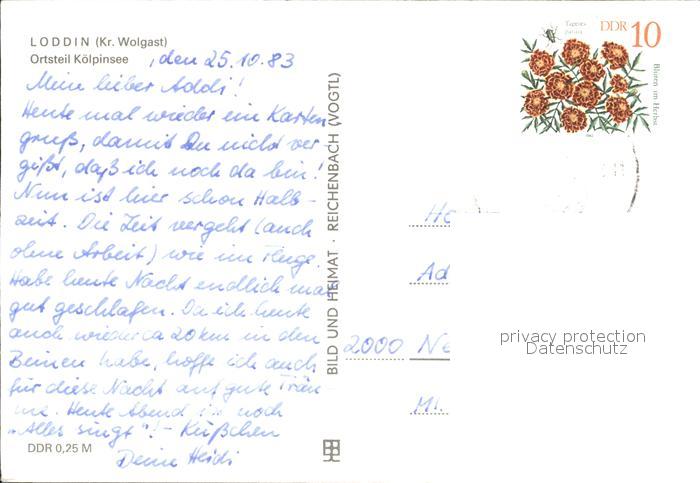 LODDIN (Kr. Wolgast)
Ortsteil Kölpinsee
, den 25.10.83
Mein lieber Addi!
Heute mal wieder ein Karten
gruß, damit Du nicht ver
gißt, daß ich noch da bin!
Nun ist hier schon Halb-
zeit. Die Zeit vergeht (auch
ohne Arbeit) wie im Fluge.
Habe heute Nacht endlich mal
gut geschlafen. Da ich heute
auch wieder ca 20 km in den
Beinen habe, hoffe ich auch
für diese Nacht auf gute Träu-
me. Heute Abend ist noch
"Alles singt"! - Küßchen
Deine Heidi
DDR 0,25 M
BILD UND HEIMAT · REICHENBACH (VOGTL)
Tagetes
patula
DDR 10
Blüten im Herbst
1982
He
Ad
2000 Ne
privacy protection
Datenschutz